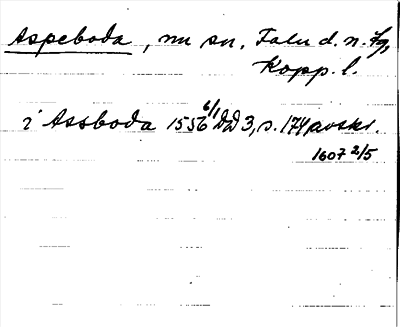 Aspeboda, nu sn, Falu d. n. fg,
Kopp. l.
i Assboda 1556 6/1 DD 3, s. 174 avskr.
1607 2/5